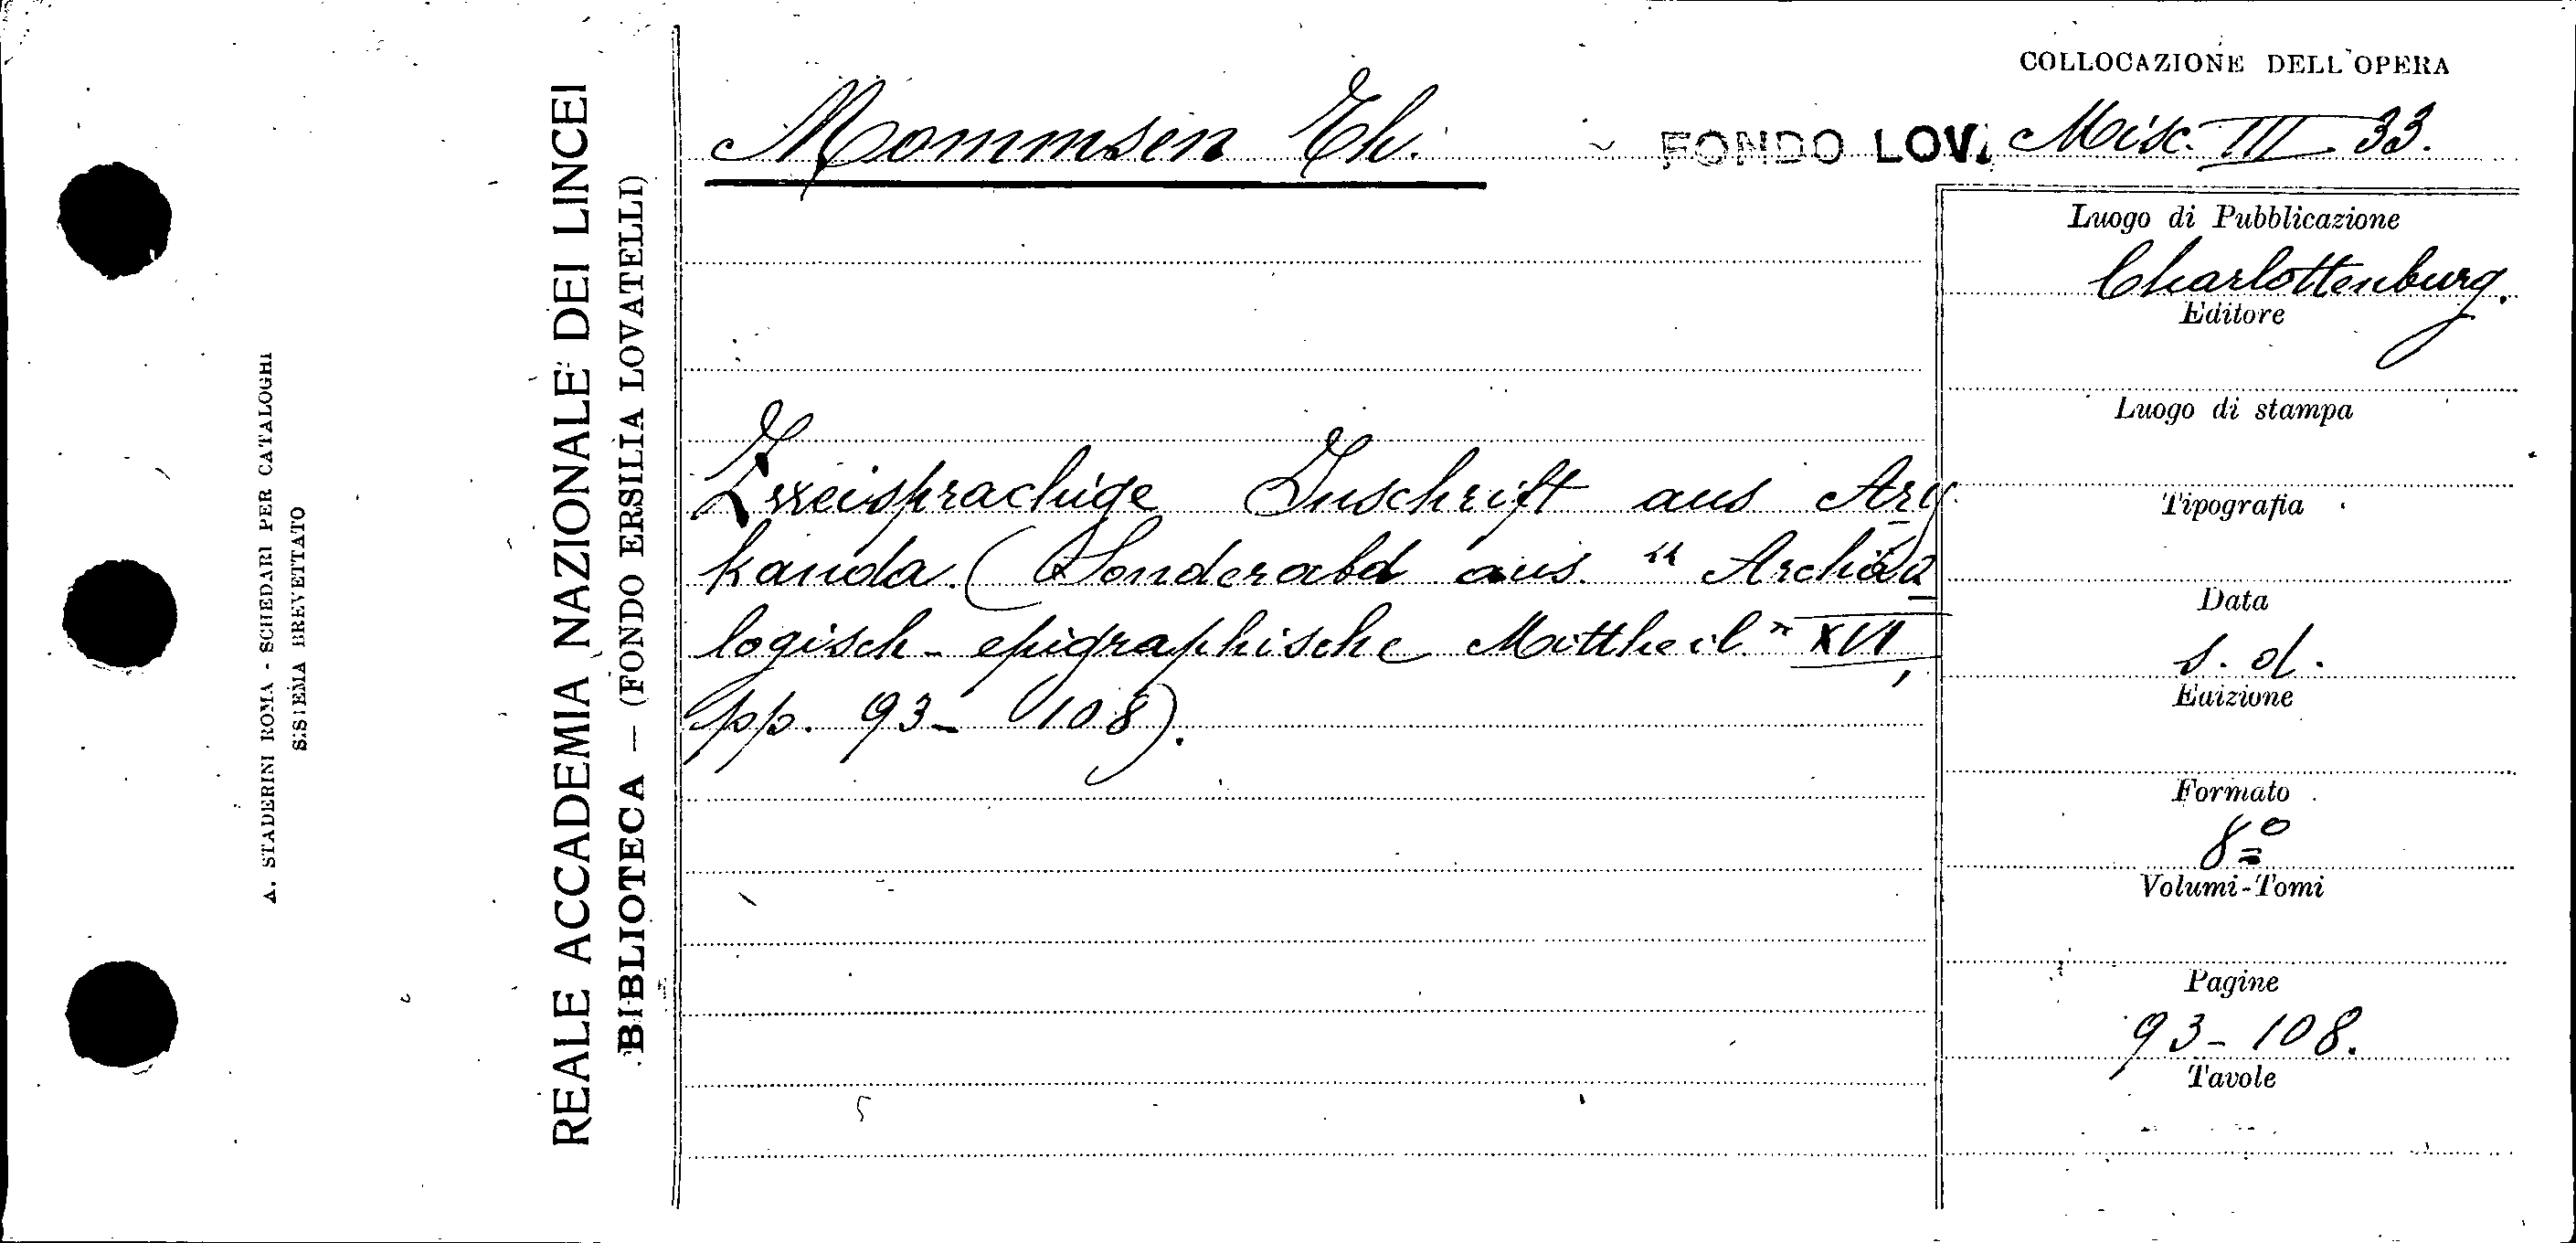 COLLOCAZIONE DELL'OPERA
Mommsen Th.
FONDO LOV.
Misc. III 33.
REALE ACCADEMIA NAZIONALE DEI LINCEI
BIBLIOTECA — (FONDO ERSILIA LOVATELLI)
A. STADERINI ROMA - SCHEDARI PER CATALOGHI
SISTEMA BREVETTATO
Zweisprachige Inschrift aus Ary
kanda. (Sonderabd aus. " Archäo
logisch - epigraphische Mittheil. " XVI,
pp. 93 - 108).
Luogo di Pubblicazione
Charlottenburg.
Editore
Luogo di stampa
Tipografia
Data
s. d.
Edizione
Formato
8º
Volumi-Tomi
Pagine
93 - 108.
Tavole